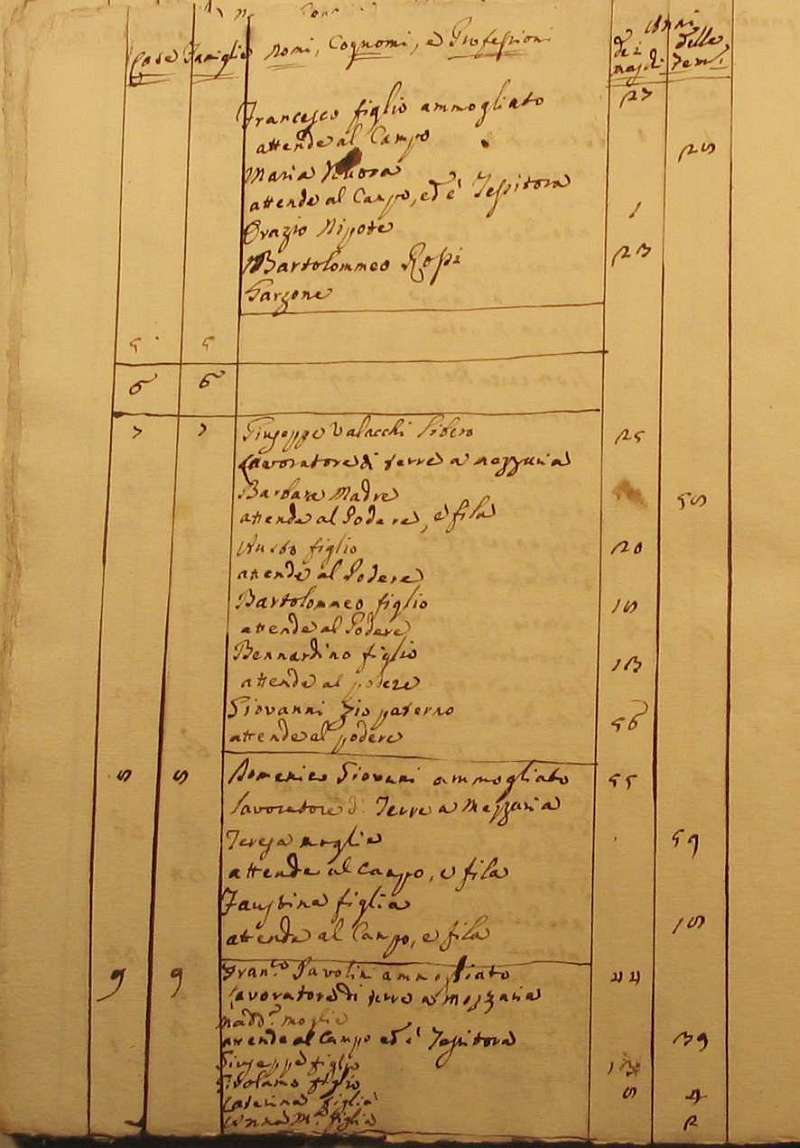 Anni
Case Famiglie Nomi, Cognomi, e Professioni dei maschi delle Fem.
Francesco figlio ammogliato 27
attende al Campo
Maria Nuora 28
attende al Campo, ed è Tessitora
Orazio Nipote 1
Bartolommeo Rossi 23
Garzone
5 5
6 6
7 7 Giuseppe Valacchi libero 25
Lavoratore di terre a mezzaria
Barbara Madre 58
attende al Podere, e fila
figlio 20
attende al Podere
Bartolommeo figlio 18
attende al Podere
Bennardino figlio 13
attende al podere
Giovanni Zio paterno 56
attende al podere
8 8 Domenico Giovani ammogliato 55
lavoratore di Terre a Mezzaria
Teresa moglie 59
attende al Campo, e fila
Faustina figlia 18
attende al Campo, e fila
9 9 Fran.co Pavolin ammogliato 44
Lavoratore di terre a Mezzaria
Madd.a moglie
attende al Campo ed è Tessitora 39
Giuseppe figlio 13
Girolamo figlio 8
Caterina figlia 4
M.a figlia 2